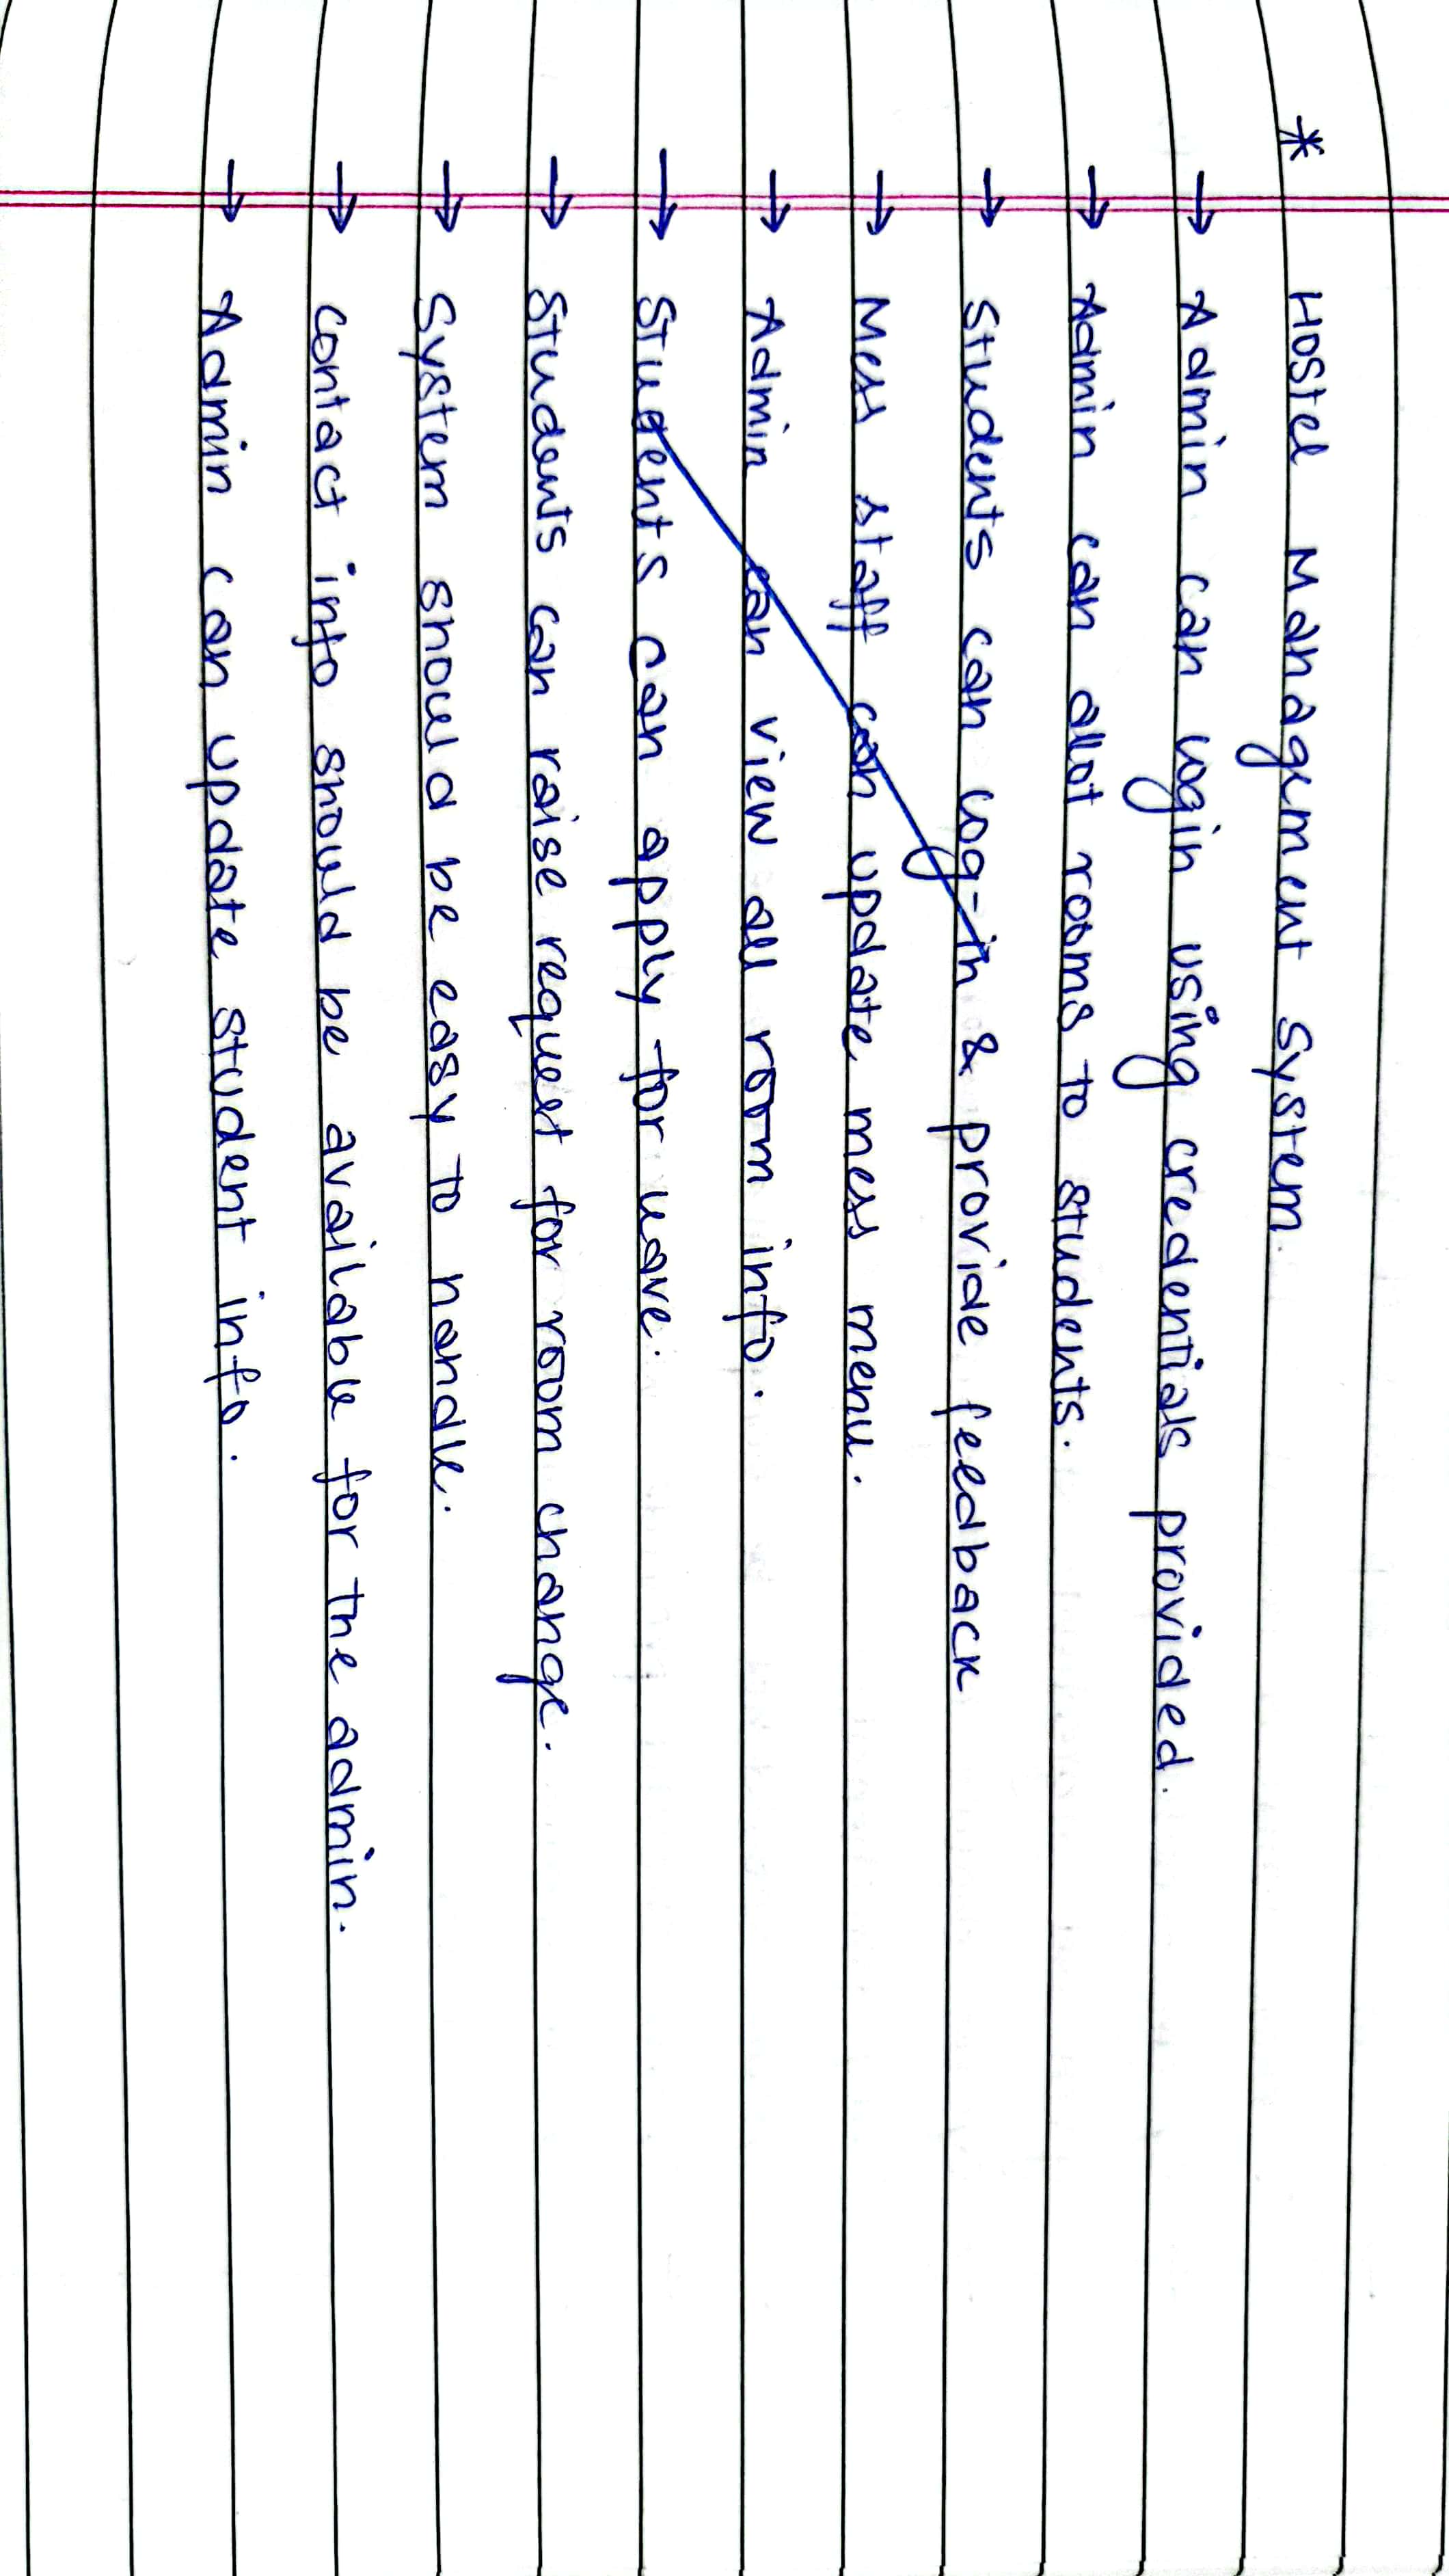 * Hostel Management System
→ Admin can login using credentials provided.
→ Admin can allot rooms to students.
→ Students can log-in & provide feedback
→ Mess staff can update mess menu.
→ Admin can view all room info.
→ Students can apply for leave.
→ Students can raise request for room change.
→ System should be easy to handle.
→ Contact info should be available for the admin.
→ Admin can update student info.